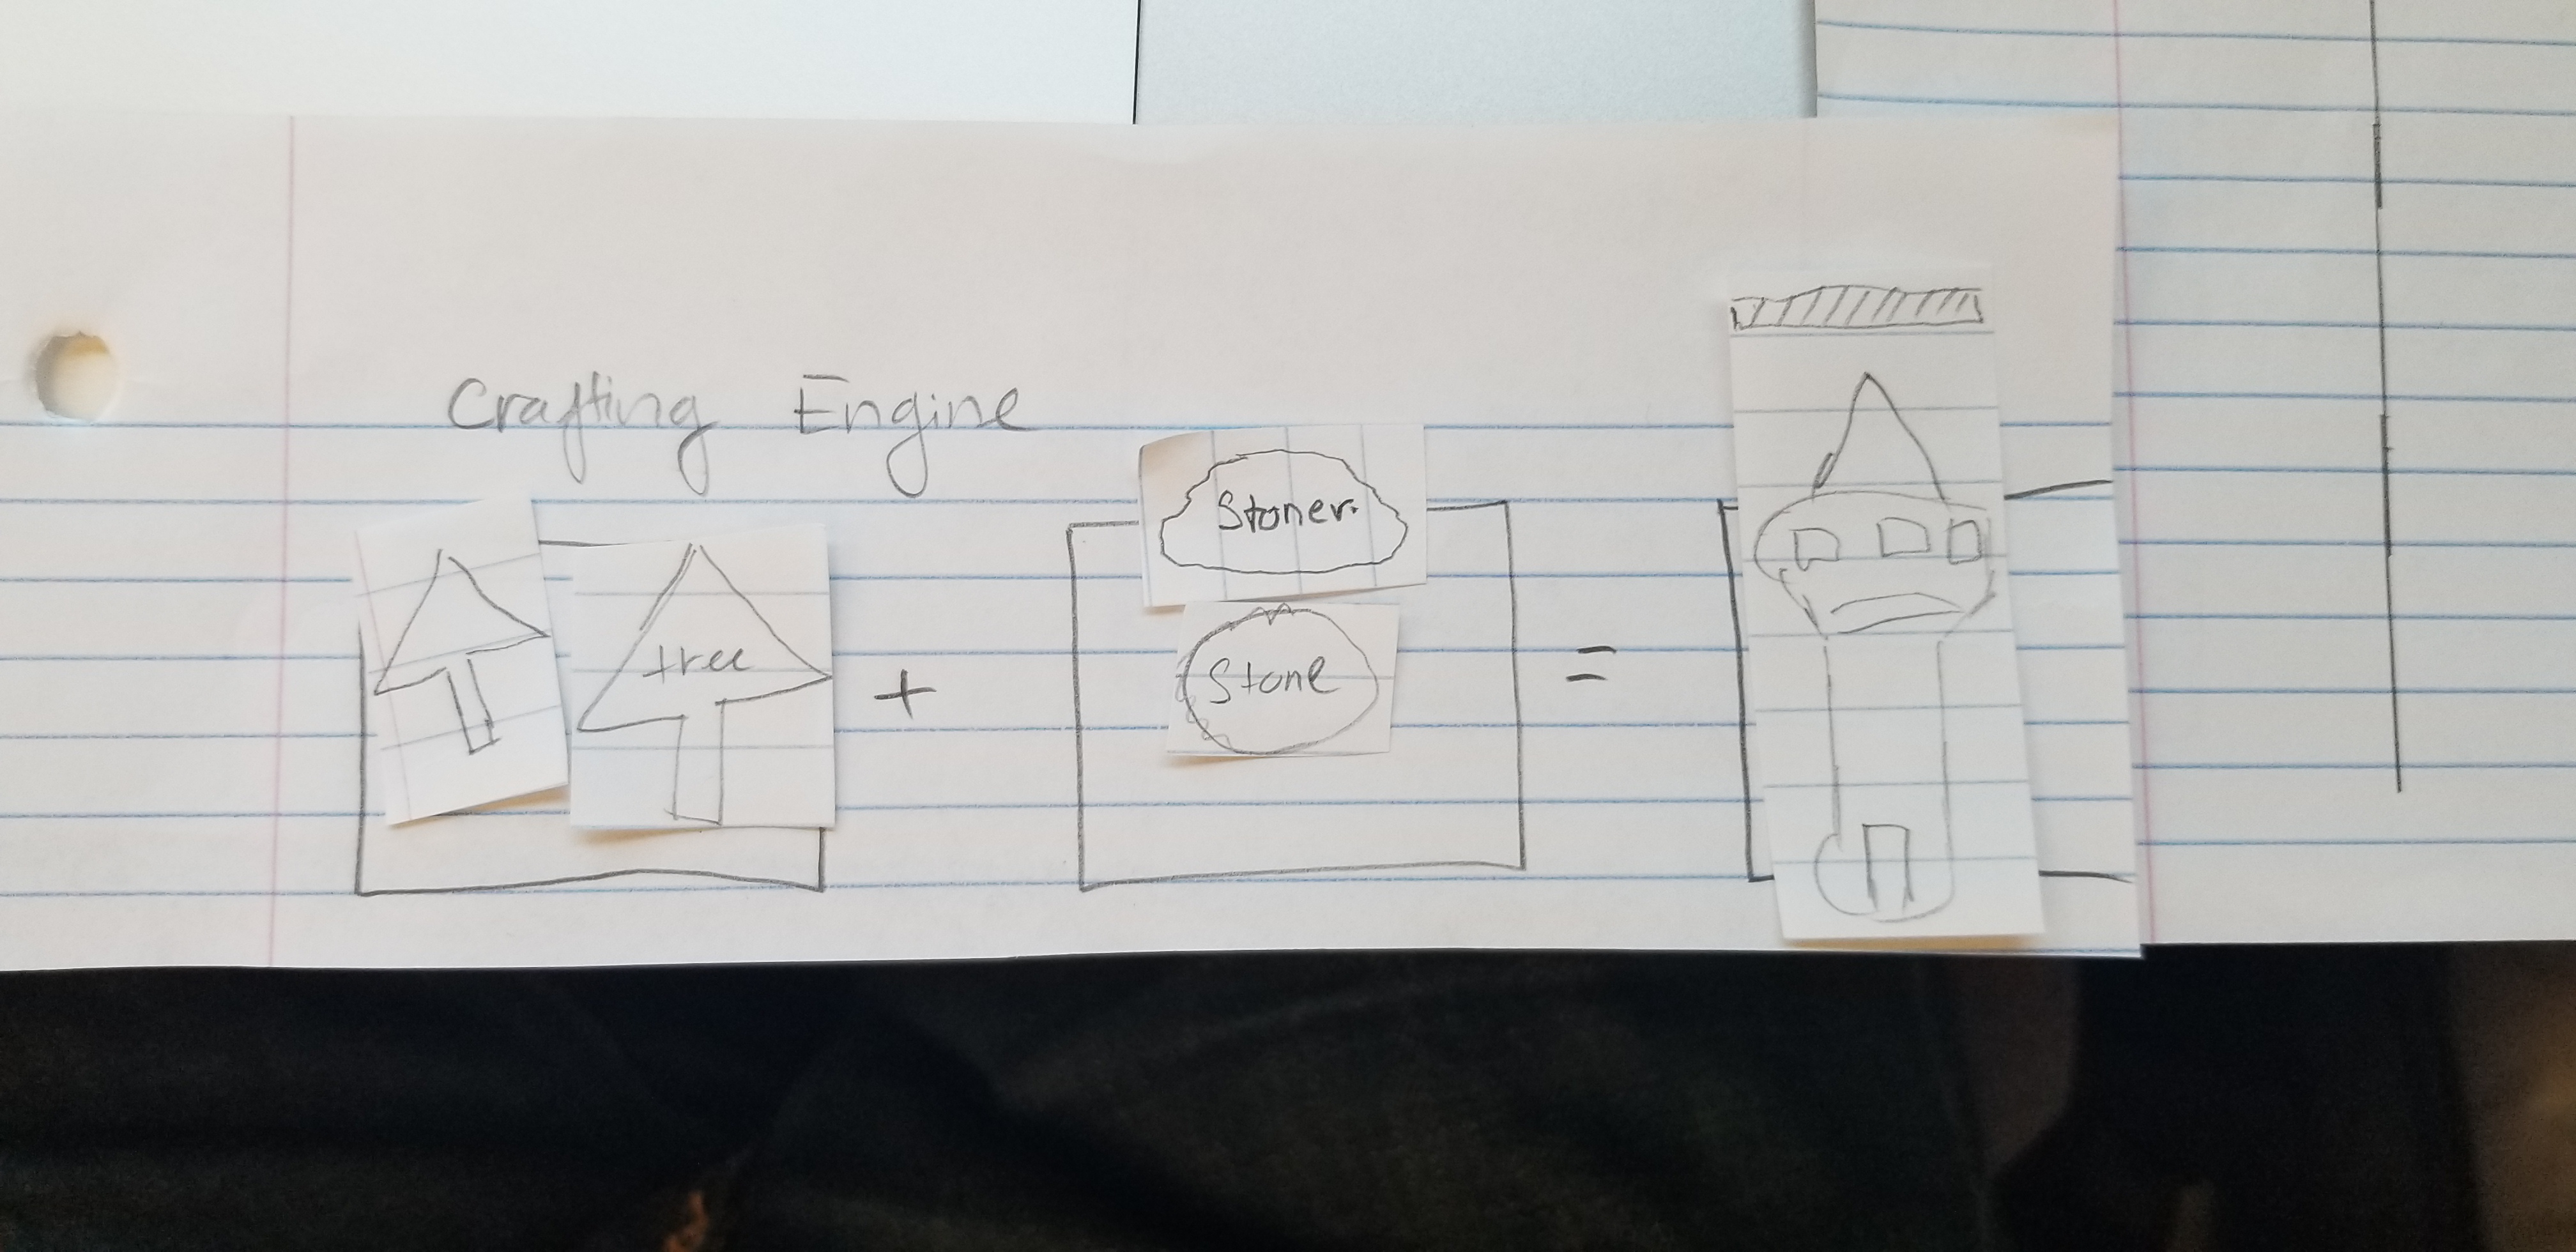 Crafting Engine
tree
+
Stoner
Stone
=